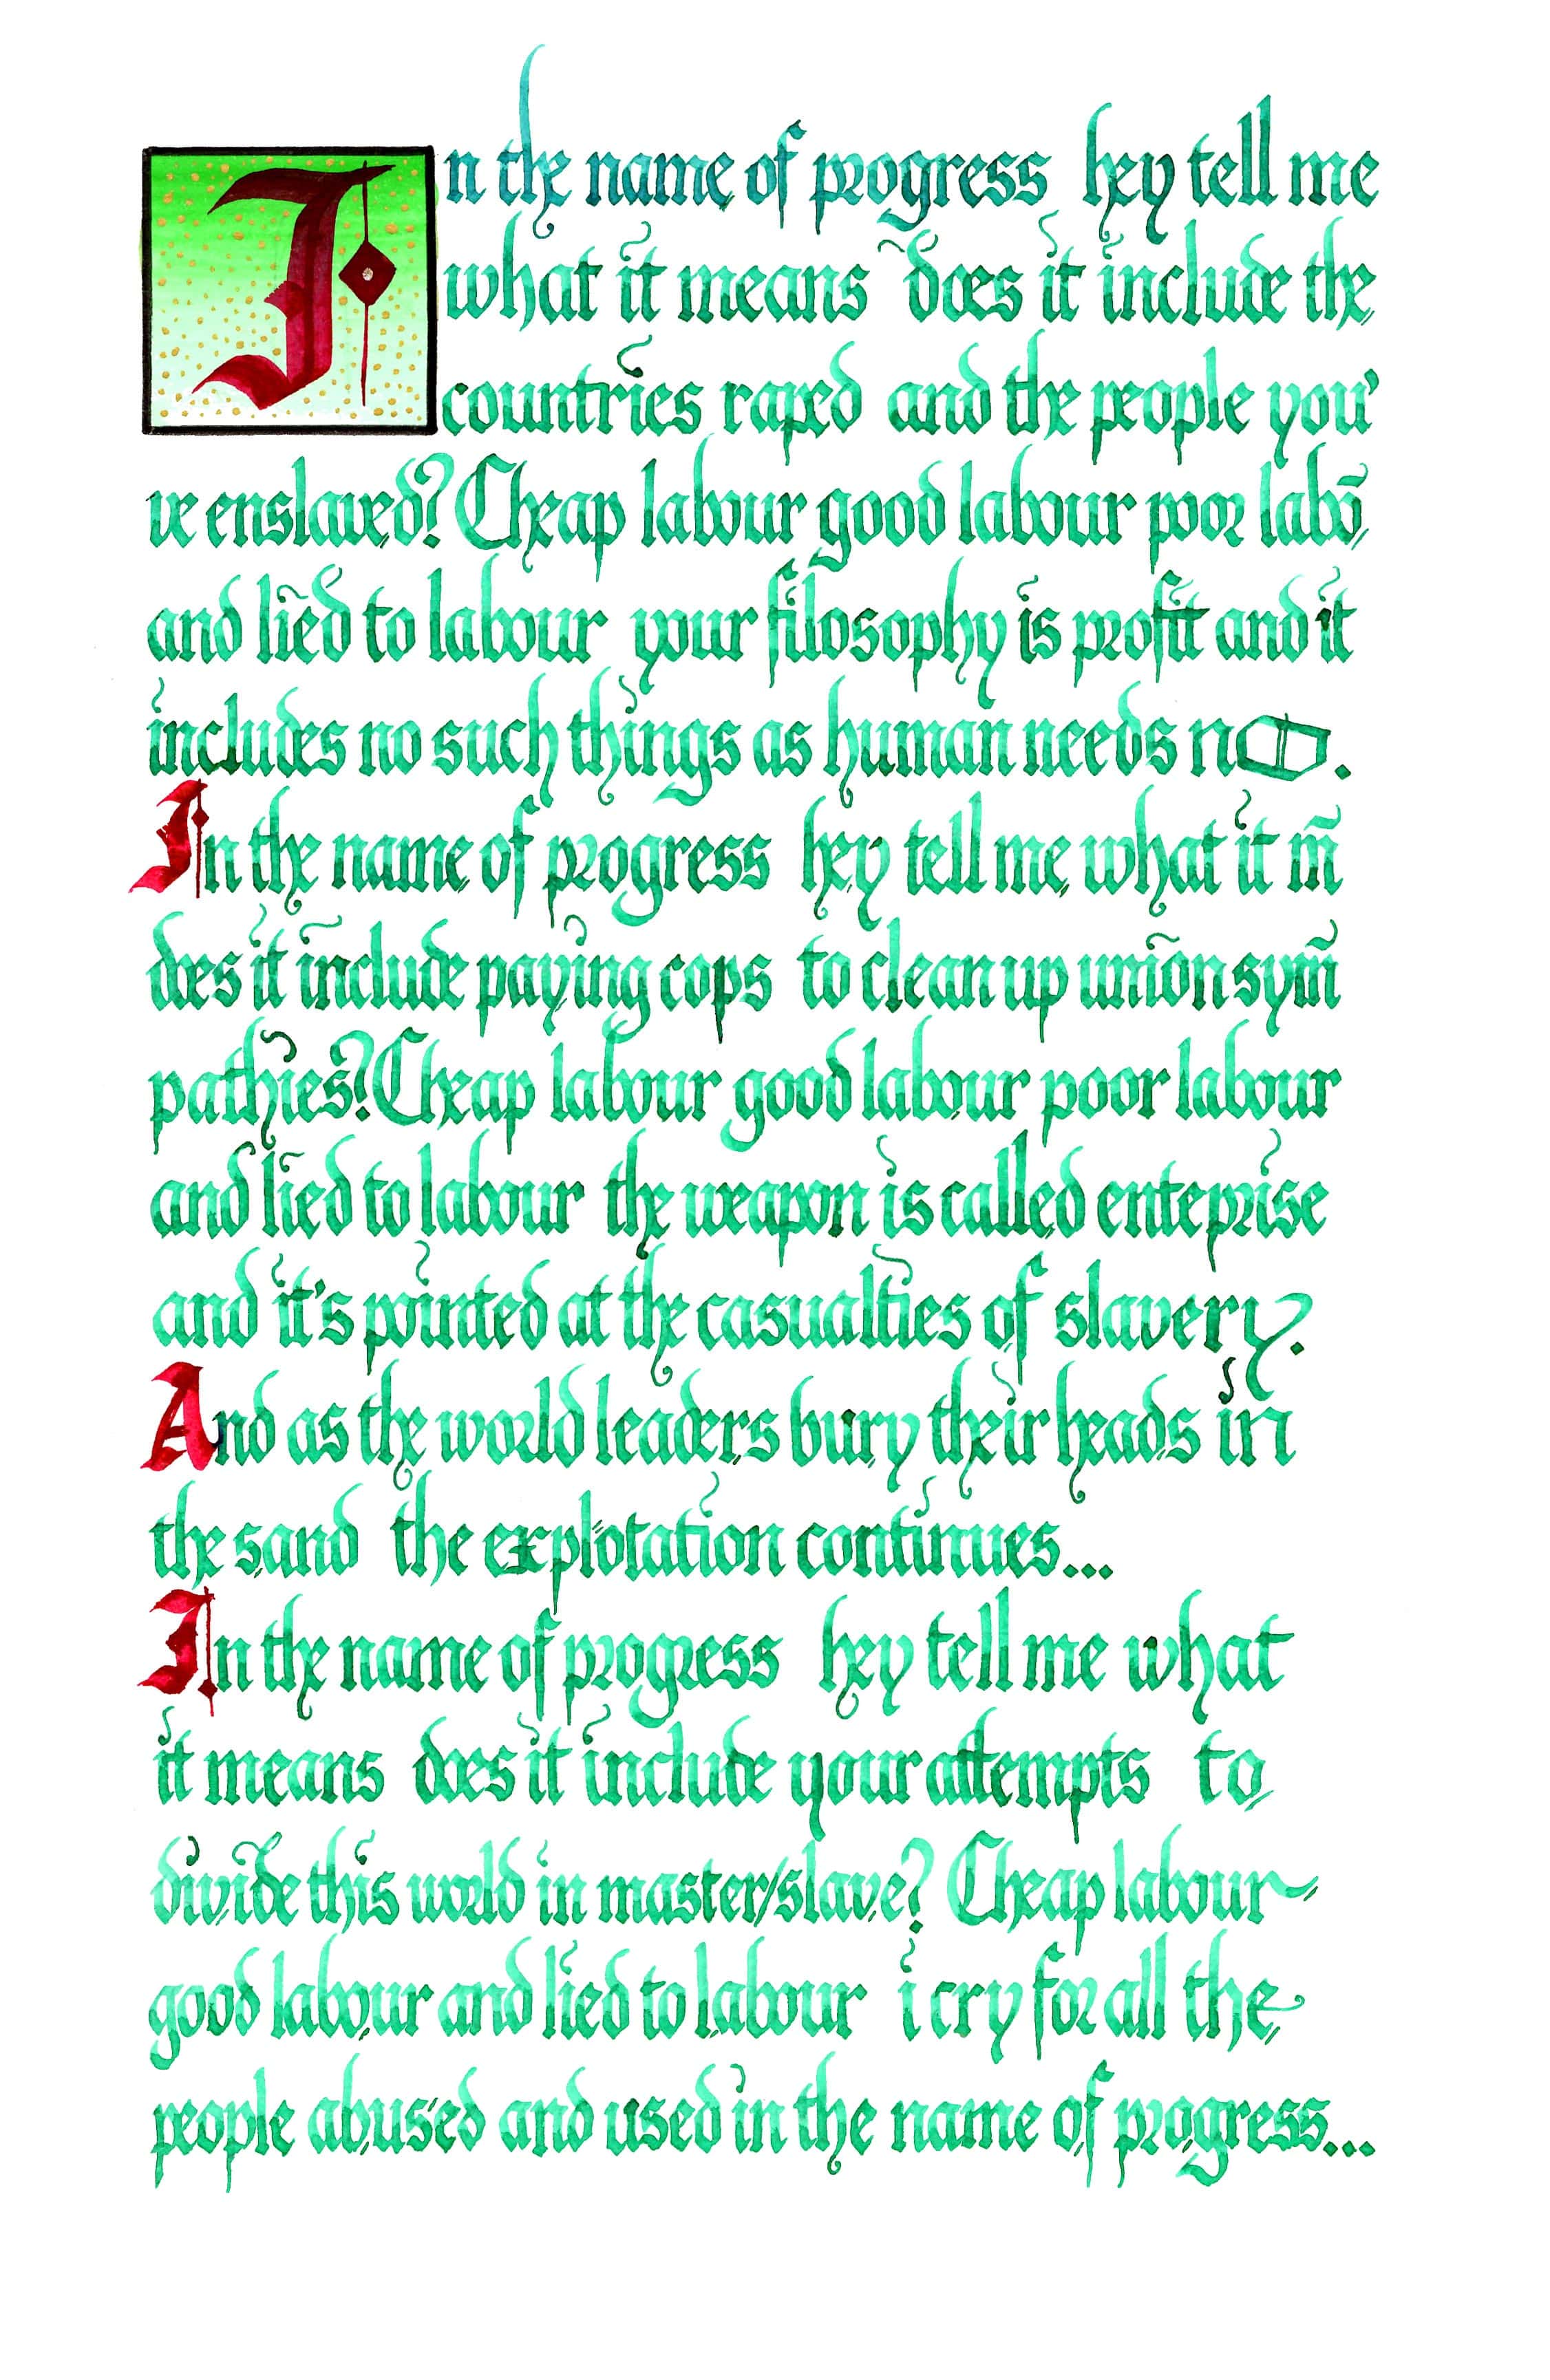 In the name of progress hey tell me
what it means does it include the
countries raped and the people you'
ve enslaved? Cheap labour good labour poor labō
and lied to labour your filosophy is profit and it
includes no such things as human needs no.
In the name of progress hey tell me what it m̄
does it include paying cops to clean up union sym̄
pathies? Cheap labour good labour poor labour
and lied to labour the weapon is called enteprise
and it's pointed at the casualties of slavery.
And as the world leaders bury their heads in
the sand the explotation continues...
In the name of progress hey tell me what
it means does it include your attempts to
divide this world in master/slave? Cheap labour
good labour and lied to labour i cry for all the
people abused and used in the name of progress...